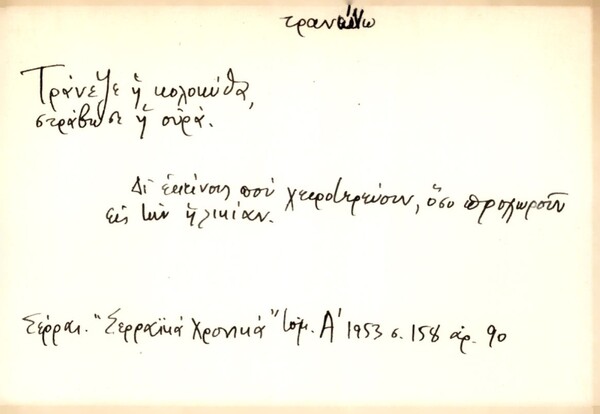 τρανεύω
Τράνεψε ἡ κολοκύθα,
στράβωσε ἡ οὐρά.
Δι' ἐκείνους ποὺ χειροτερεύουν, ὅσο προχωροῦν
εἰς τὴν ἡλικίαν.
Σέρραι. "Σερραϊκά Χρονικά" τόμ. Α' 1953 σ. 158 ἀρ. 90